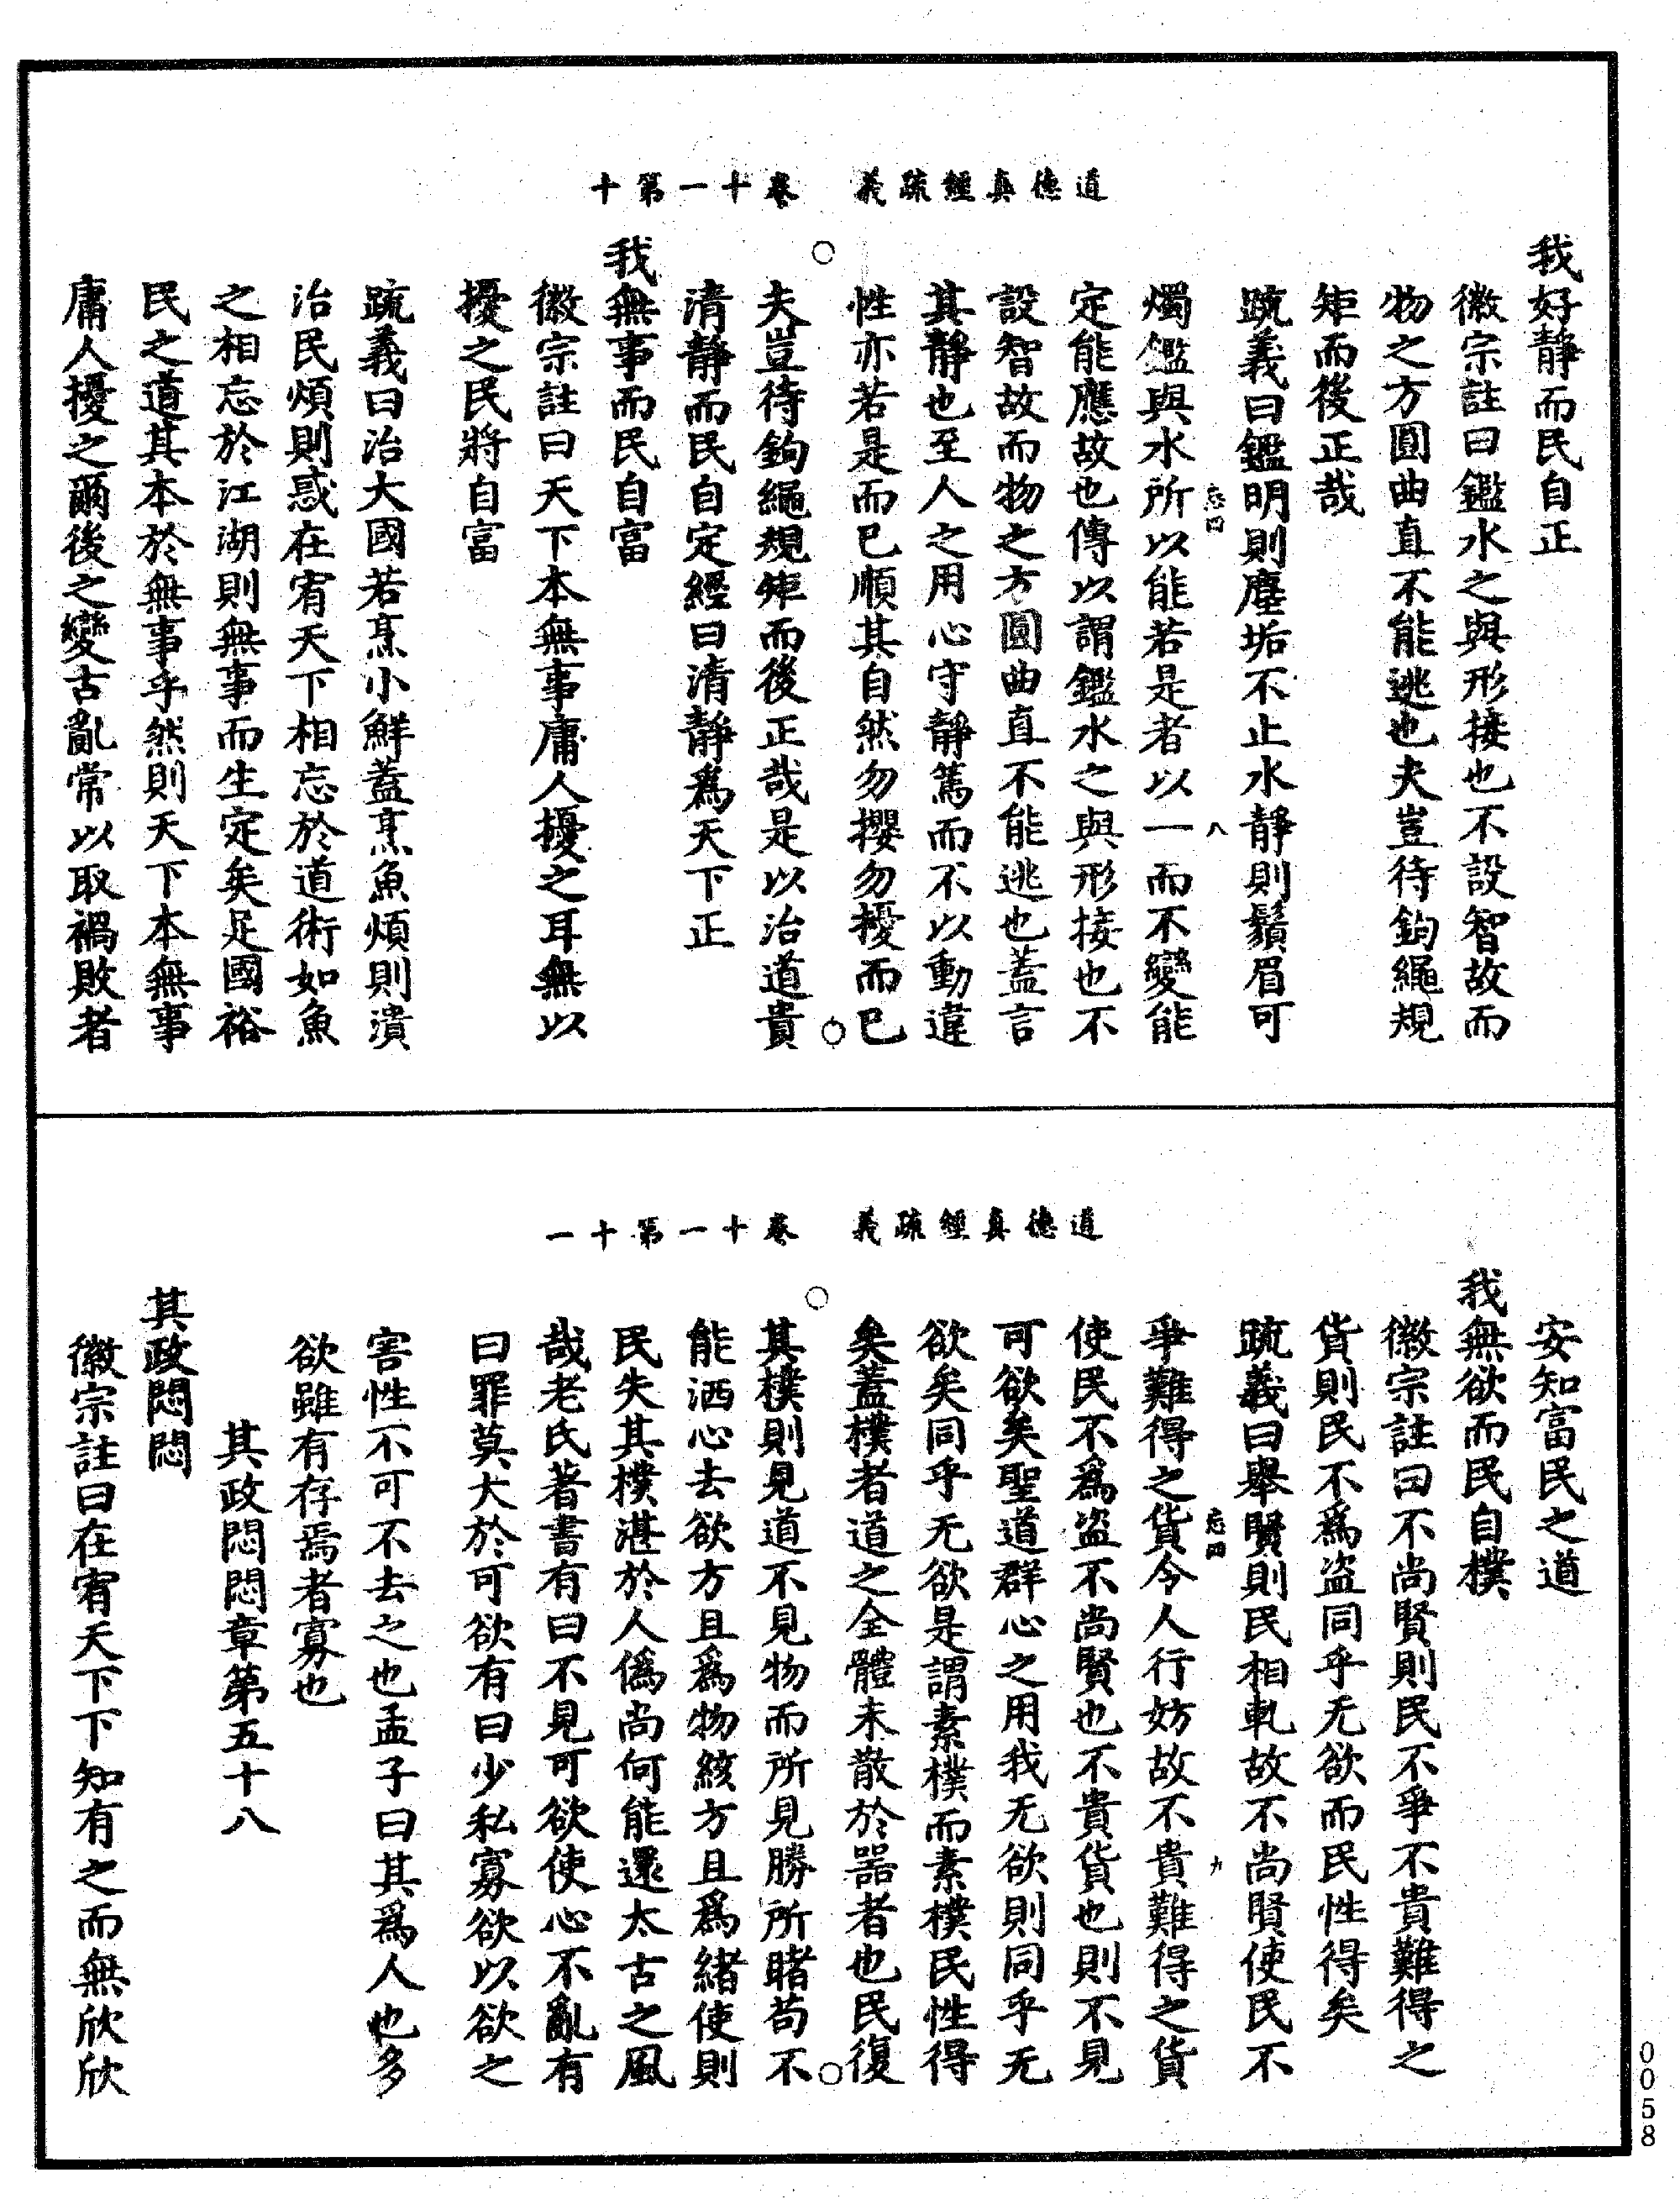 道德真經疏義　卷十一第十
我好靜而民自正
徽宗註曰鑑水之與形接也不設智故而
物之方圓曲直不能逃也夫豈待鈎繩規
矩而後正哉
疏義曰鑑明則塵垢不止水靜則鬚眉可
燭鑑與水所以能若是者以一而不變能
定能應故也傳以謂鑑水之與形接也不
設智故而物之方圓曲直不能逃也蓋言
其靜也至人之用心守靜篤而不以動違
性亦若是而已順其自然勿攖勿擾而已
夫豈待鉤繩規矩而後正哉是以治道貴
清靜而民自定經曰清靜爲天下正
我無事而民自富
徽宗註曰天下本無事庸人擾之耳無以
擾之民將自富
疏義曰治大國若烹小鮮蓋烹魚煩則潰
治民煩則惑在宥天下相忘於道術如魚
之相忘於江湖則無事而生定矣足國裕
民之道其本於無事乎然則天下本無事
庸人擾之爾後之變古亂常以取禍敗者
道德真經疏義　卷十一第十一
安知富民之道
我無欲而民自樸
徽宗註曰不尚賢則民不爭不貴難得之
貨則民不爲盜同乎无欲而民性得矣
疏義曰舉賢則民相軋故不尚賢使民不
爭難得之貨令人行妨故不貴難得之貨
使民不爲盜不尚賢也不貴貨也則不見
可欲矣聖道群心之用我无欲則同乎无
欲矣同乎无欲是謂素樸而素樸民性得
矣蓋樸者道之全體未散於器者也民復
其樸則見道不見物而所見勝所睹苟不
能洒心去欲方且爲物絯方且爲緒使則
民失其樸湛於人僞尚何能還太古之風
哉老氏著書有曰不見可欲使心不亂有
曰罪莫大於可欲有曰少私寡欲以欲之
害性不可不去之也孟子曰其爲人也多
欲雖有存焉者寡也
其政悶悶章第五十八
其政悶悶
徽宗註曰在宥天下下知有之而無欣欣
八
九
0058